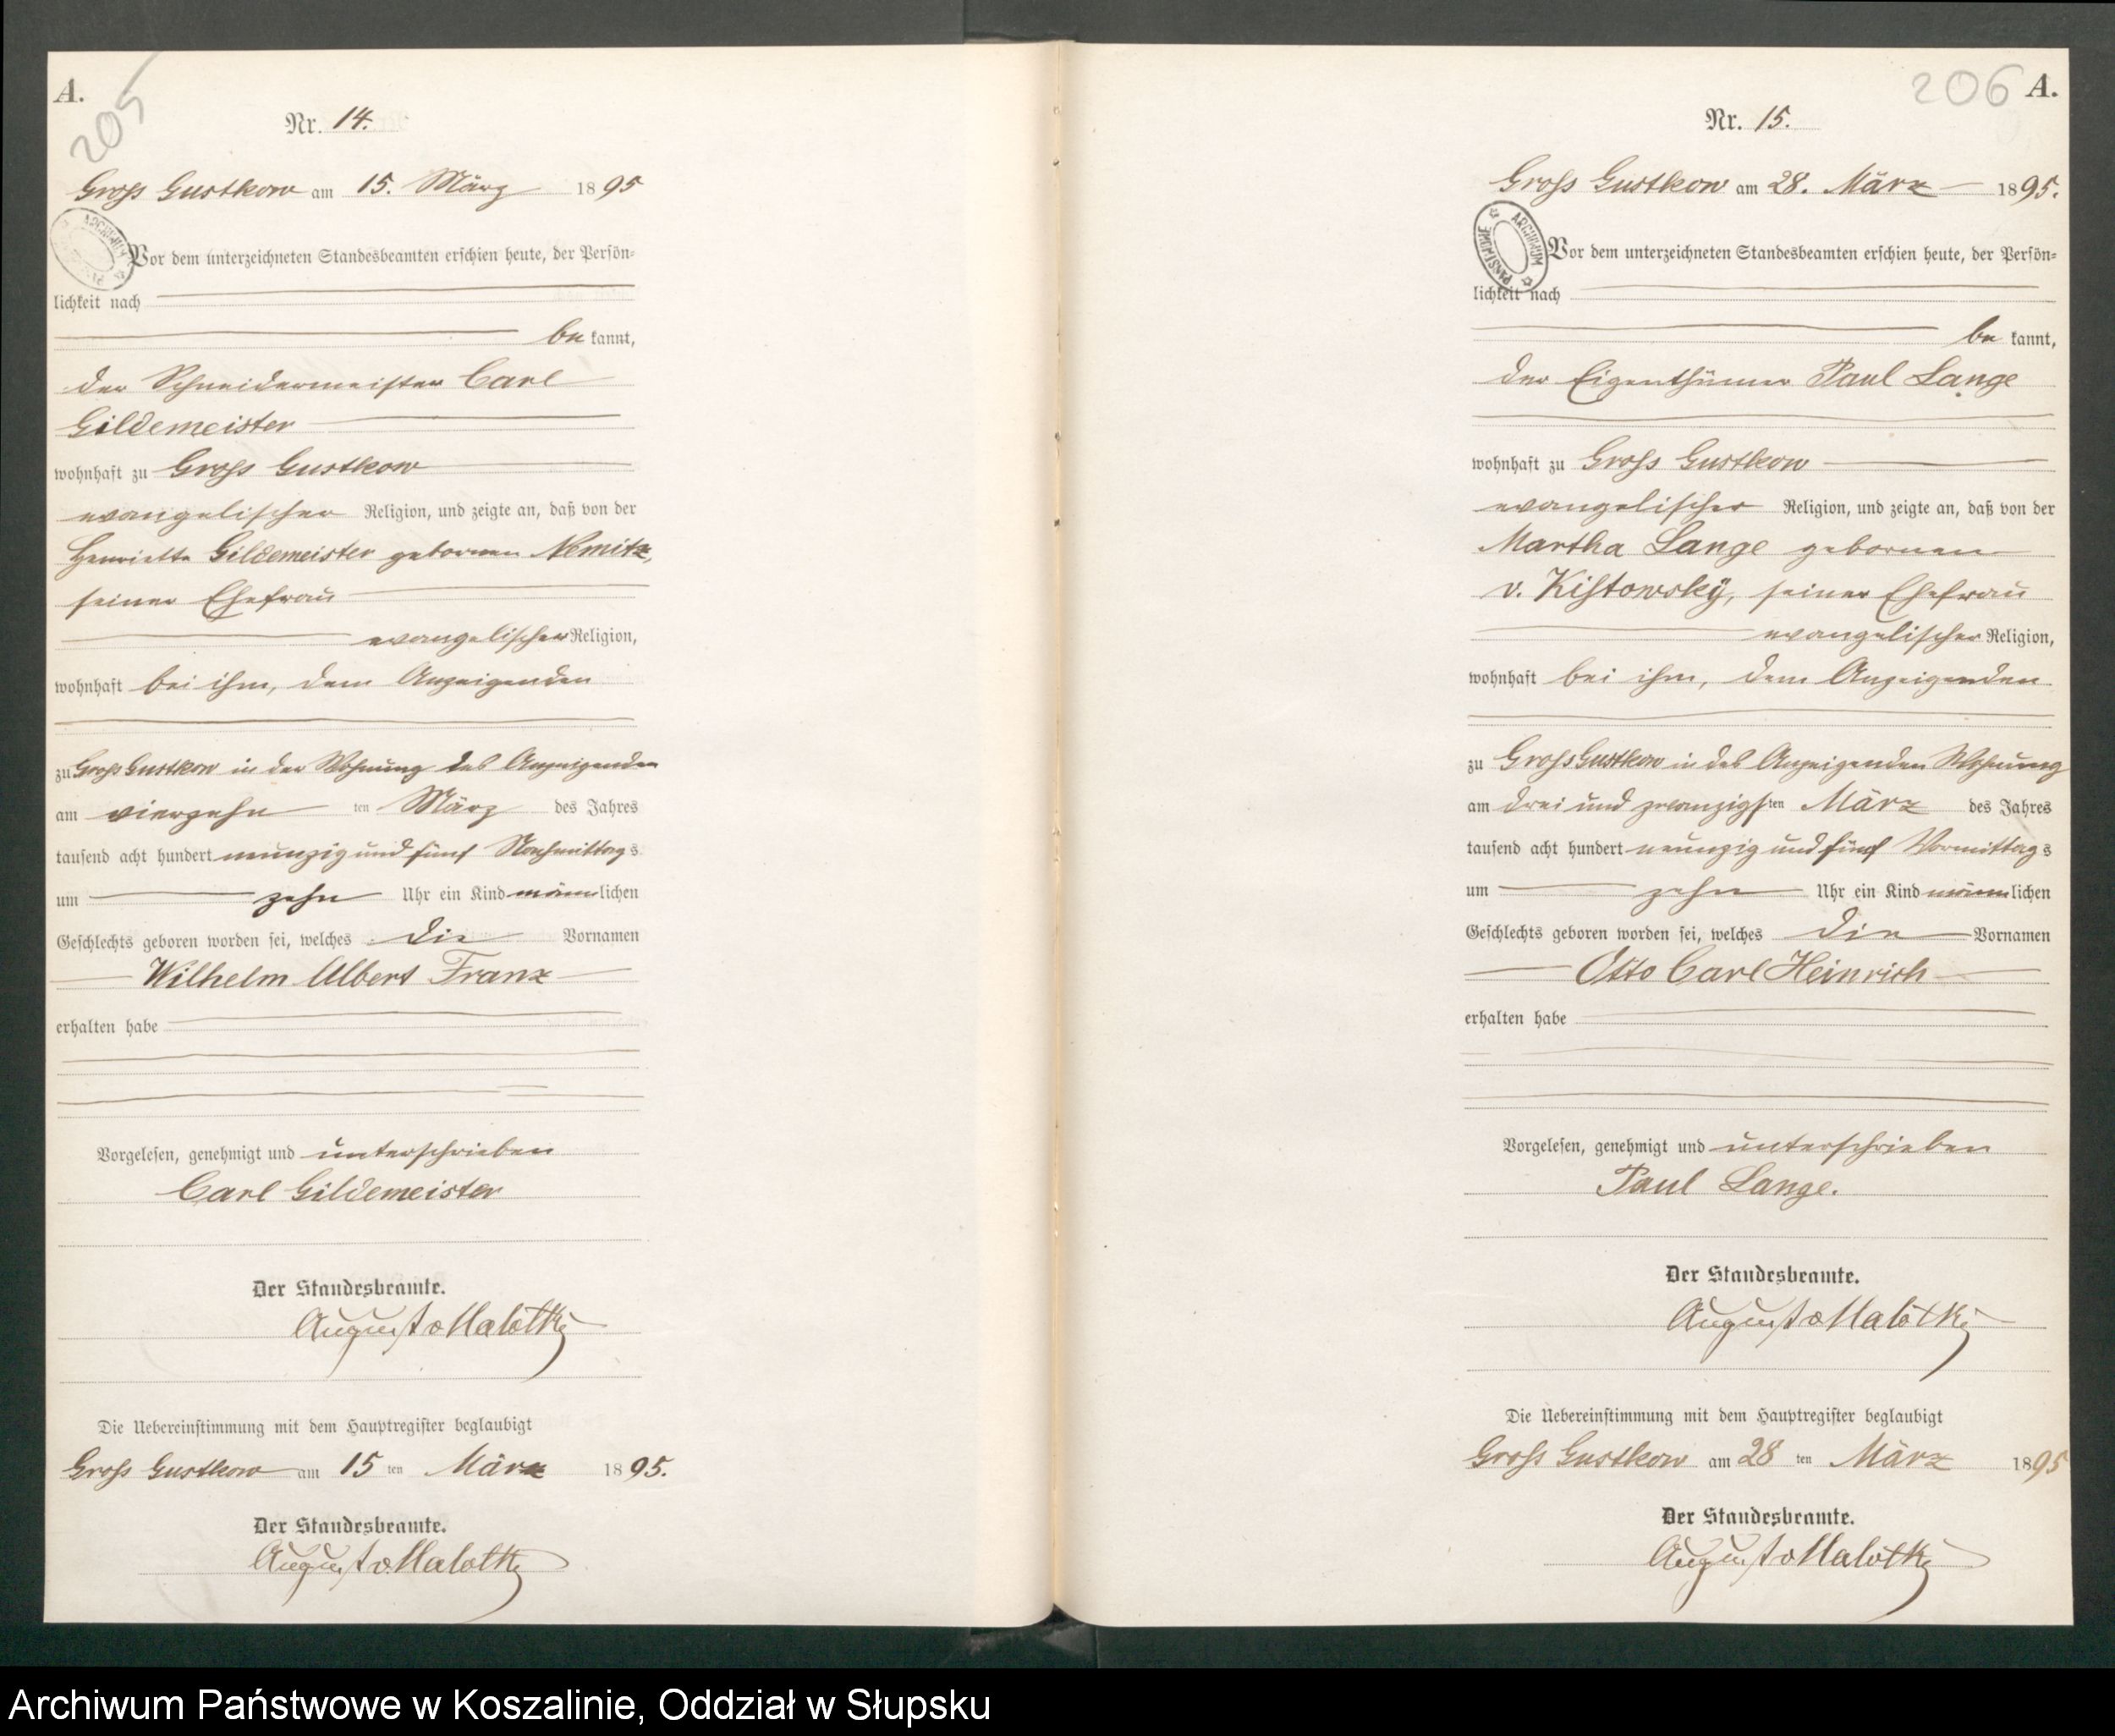 A.
205
Nr. 14.
Gross Gustkow am 15. März 1895
ARCHIWUM PAŃSTWOWE
Vor dem unterzeichneten Standesbeamten erschien heute, der Persön-
lichkeit nach
be kannt,
der Schneidermeister Carl
Gildemeister
wohnhaft zu Gross Gustkow
evangelischer Religion, und zeigte an, daß von der
Henriette Gildemeister gebornen Nemitz,
seiner Ehefrau
evangelischer Religion,
wohnhaft bei ihm, dem Anzeigenden
zu Gross Gustkow in der Wohnung des Anzeigenden
am vierzehn ten März des Jahres
tausend acht hundert neunzig und fünf Nachmittags
um zehn Uhr ein Kind männlichen
Geschlechts geboren worden sei, welches die Vornamen
Wilhelm Albert Franz
erhalten habe
Vorgelesen, genehmigt und unterschrieben
Carl Gildemeister
Der Standesbeamte.
August v Malotki
Die Uebereinstimmung mit dem Hauptregister beglaubigt
Gross Gustkow am 15 ten März 1895.
Der Standesbeamte.
August v Malotki
206 A.
Nr. 15.
Gross Gustkow am 28. März 1895.
ARCHIWUM PAŃSTWOWE
Vor dem unterzeichneten Standesbeamten erschien heute, der Persön-
lichkeit nach
be kannt,
der Eigenthümer Paul Lange
wohnhaft zu Gross Gustkow
evangelischer Religion, und zeigte an, daß von der
Martha Lange gebornen
v. Kistowsky, seiner Ehefrau
evangelischer Religion,
wohnhaft bei ihm, dem Anzeigenden
zu Gross Gustkow in des Anzeigenden Wohnung
am drei und zwanzigsten März des Jahres
tausend acht hundert neunzig und fünf Vormittags
um zehn Uhr ein Kind männlichen
Geschlechts geboren worden sei, welches die Vornamen
Otto Carl Heinrich
erhalten habe
Vorgelesen, genehmigt und unterschrieben
Paul Lange.
Der Standesbeamte.
August v Malotki
Die Uebereinstimmung mit dem Hauptregister beglaubigt
Gross Gustkow am 28 ten März 1895
Der Standesbeamte.
August v Malotki
Archiwum Państwowe w Koszalinie, Oddział w Słupsku